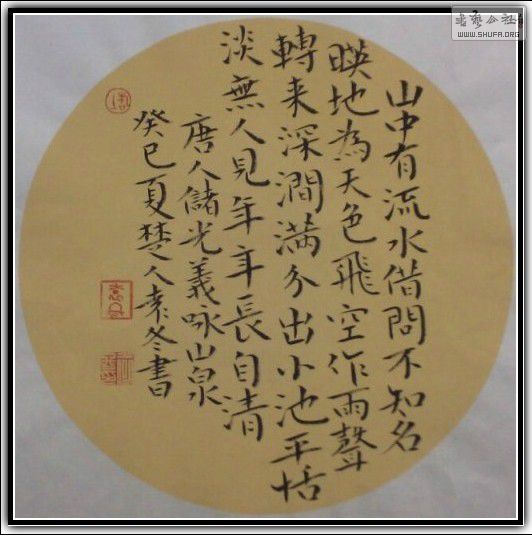 山中有流水借問不知名
暎地為天色飛空作雨聲
轉来深澗滿分出小池平恬
淡無人見年年長自清
唐人儲光義咏山泉
癸巳夏楚人袁冬書
WWW.SHUFA.ORG